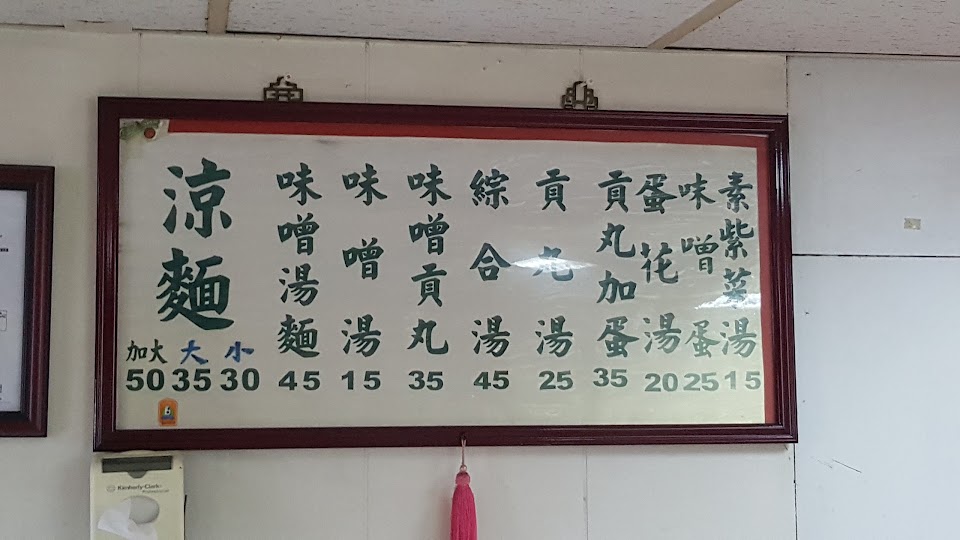 涼麵
加大 大 小
50 35 30
味噌湯麵
45
味噌湯
15
味噌貢丸
35
綜合湯
45
貢丸湯
25
貢丸加蛋
35
蛋花湯
20
味噌蛋
25
素紫菜湯
15
6
Kimberly-Clark
Professional